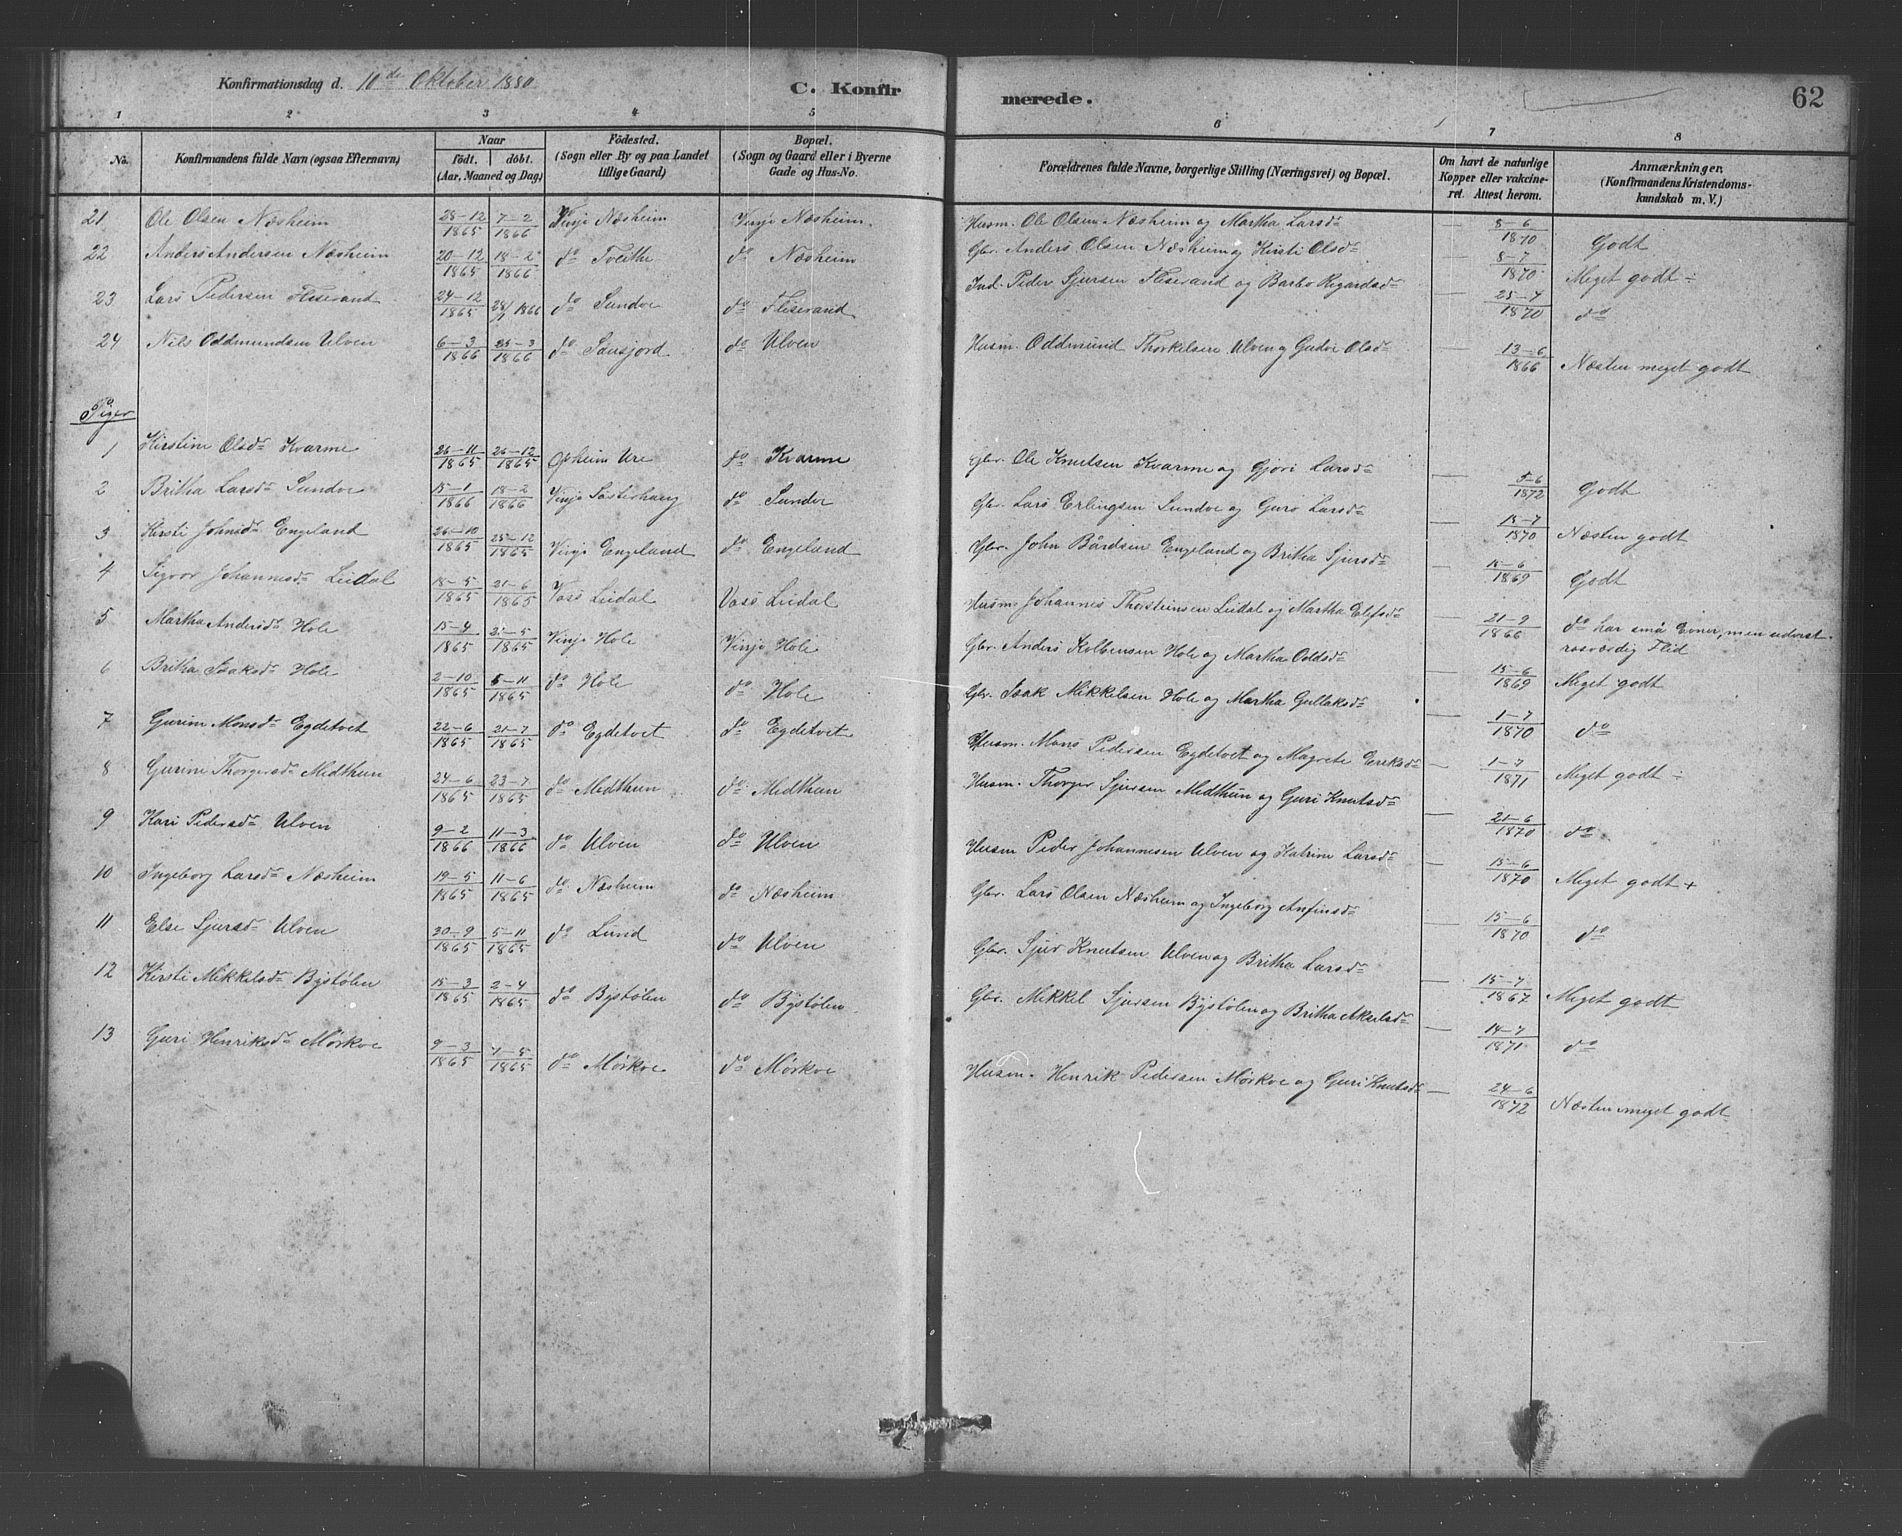 Konfirmationsdag d. 10de Oktober 1880.
C. Konfirmerede.
62
1 2 3 4 5 6 7 8
No. | Konfirmandens fulde Navn (ogsaa Efternavn) | Naar födt. döbt. (Aar, Maaned og Dag) | Födested. (Sogn eller By og paa Landet tillige Gaard) | Bopæl. (Sogn og Gaard eller i Byerne Gade og Hus-No. | Forældrenes fulde Navne, borgerlige Stilling (Næringsvei) og Bopæl. | Om havt de naturlige Kopper eller vakcineret. Attest herom. | Anmærkninger. (Konfirmandens Kristendomskundskab m. V.)
21 Ole Olsen Næsheim 28-12 1865 7-2 1866 Vinje Næsheim Vinje Næsheim. Husm. Ole Olsen Næsheim og Martha Larsdr — 8-6 1870 Godt
22 Anders Andersen Næsheim 20-12 1865 18-2 1866 do Tveithe do Næsheim Gbr. Anders Olsen Næsheim og Kirsti Olsdr — 8-7 1870 Meget godt ÷
23 Lars Pedersen Fliserand 24-12 1865 28/1 1866 do Sundve do Fliserand Ind. Peder Sjursen Fliserand og Barbo Regardsdr — 25-4 1870 do
24 Nils Oddmundsen Ulven 6-3 1866 25-3 1866 do Sausjord do Ulven Husm. Oddmund Thorkelsen Ulven og Gudve Olsdr — 13-6 1866 Næsten meget godt
Piger
1 Kirstine Olsdr Kvarme 26-11 1865 26-12 1865 Opheim Ure do Kvarme Gbr. Ole Knutsen Kvarme og Gjøri Larsdr — 5-6 1872 Godt
2 Britha Larsdr Sundve 15-1 1866 18-2 1866 Vinje Sæsterhaug do Sundve Gbr. Lars Erlingsen Sundve og Guro Larsdr — 18-7 1870 Næsten godt
3 Kirsti Johnsdr Engeland 26-10 1865 25-12 1865 Vinje Engeland do Engeland Gbr. John Bårdsen Engeland og Britha Sjursdr — 15-6 1869 Godt
4 Sigvor Johannesdr Leidal 18-5 1865 21-6 1865 Voss Leidal Voss Leidal Husm. Johannes Thorsteinsen Leidal og Martha Elefsdr — 21-9 1866 do har små Evner, men udvist rosværdig Flid
5 Martha Andersdr Hole 15-4 1865 21-5 1865 Vinje Hole Vinje Hole Gbr. Anders Kolbensen Hole og Martha Oddsdr — 15-6 1869 Meget godt
6 Britha Isaksdr Hole 2-10 1865 5-11 1865 do Hole do Hole Gbr. Isak Mikkelsen Hole og Martha Gullaksdr — 1-7 1870 do
7 Gurine Monsdr Egdetvet 22-6 1865 21-7 1865 do Egdetvet do Egdetvet Husm. Mons Pedersen Egdetvet og Magrete Eriksdr — 1-7 1871 Meget godt ÷
8 Gurine Thorgersdr Midthun 24-6 1865 23-7 1865 do Midthun do Midthun Husm. Thorger Sjursen Midthun og Guri Knutsdr — 21-6 1870 do
9 Kari Pedersdr Ulven 9-2 1866 11-3 1866 do Ulven do Ulven Husm Peder Johannesen Ulven og Katrine Larsdr — 15-6 1870 Meget godt +
10 Ingeborg Larsdr Næsheim 19-5 1865 11-6 1865 do Næsheim do Næsheim Gbr. Lars Olsen Næsheim og Ingeborg Anfinsdr — 15-6 1870 do
11 Else Sjursdr Ulven 20-9 1865 5-11 1865 do Lund do Ulven Gbr. Sjur Knutsen Ulven og Britha Larsdr — 15-7 1867 Meget godt
12 Kirsti Mikkelsdr Bystølen 15-3 1865 2-4 1865 do Bystølen do Bystølen Gbr. Mikkel Sjursen Bystølen og Britha Akselsdr — 14-7 1871 do
13 Guri Henriksdr Mørkve 9-3 1865 7-5 1865 do Mørkve do Mørkve Husm. Henrik Pedersen Mørkve og Guri Knutsdr — 24-6 1872 Næsten meget godt